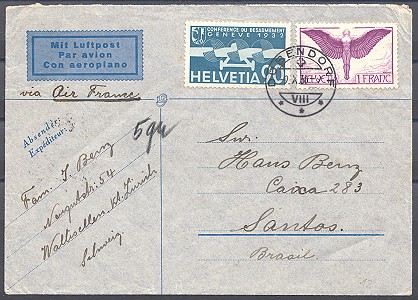 Mit Luftpost
Par avion
Con aeroplano
via Air France
CONFÉRENCE DU DÉSARMEMENT
GENÈVE 1932
HELVETIA 90
1 FRANC
VIII
Absender:
Expéditeur:
5 gr
Fam. J. Benz
Neugutstr. 54
Wallisellen Kt. Zürich
Schweiz
Hans Benz
Caixa 283
Santos.
Brasil.